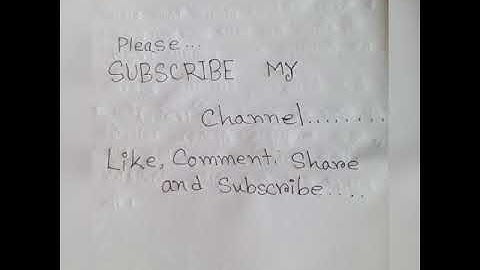 Please...
SUBSCRIBE MY
Channel........
Like, Comment. Share
and Subscribe....